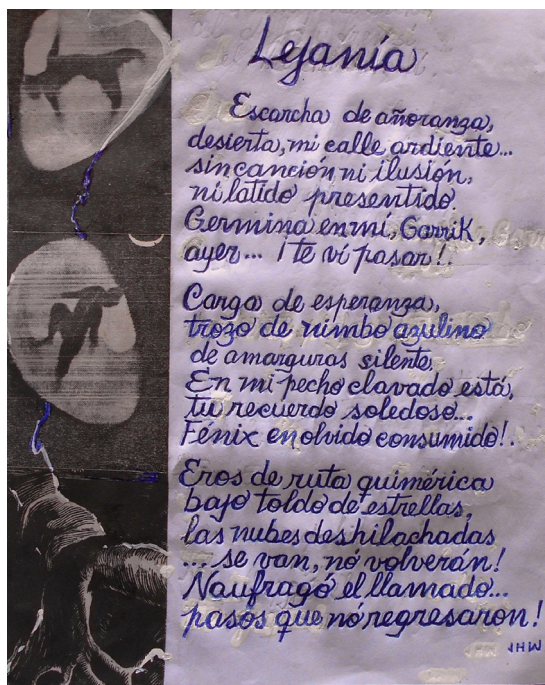 Lejanía
Escarcha de añoranza,
desierta, mi calle ardiente...
sin canción ni ilusión,
ni latido presentido.
Germina en mí, Garrik,
ayer... ¡te vi pasar!.
Carga de esperanza,
trozo de nimbo azulino
de amarguras silente.
En mi pecho clavado está,
tu recuerdo soledoso...
Fénix en olvido consumido!.
Eros de ruta quimérica
bajo toldo de estrellas,
las nubes deshilachadas
... se van, nó volverán!
Naufragó el llamado...
pasos que nó regresaron!
JHW